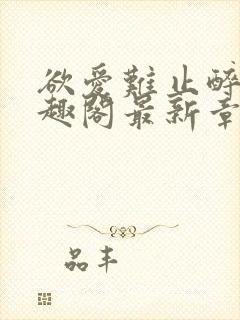 欲爱难止醉
趣阁最新章
品丰